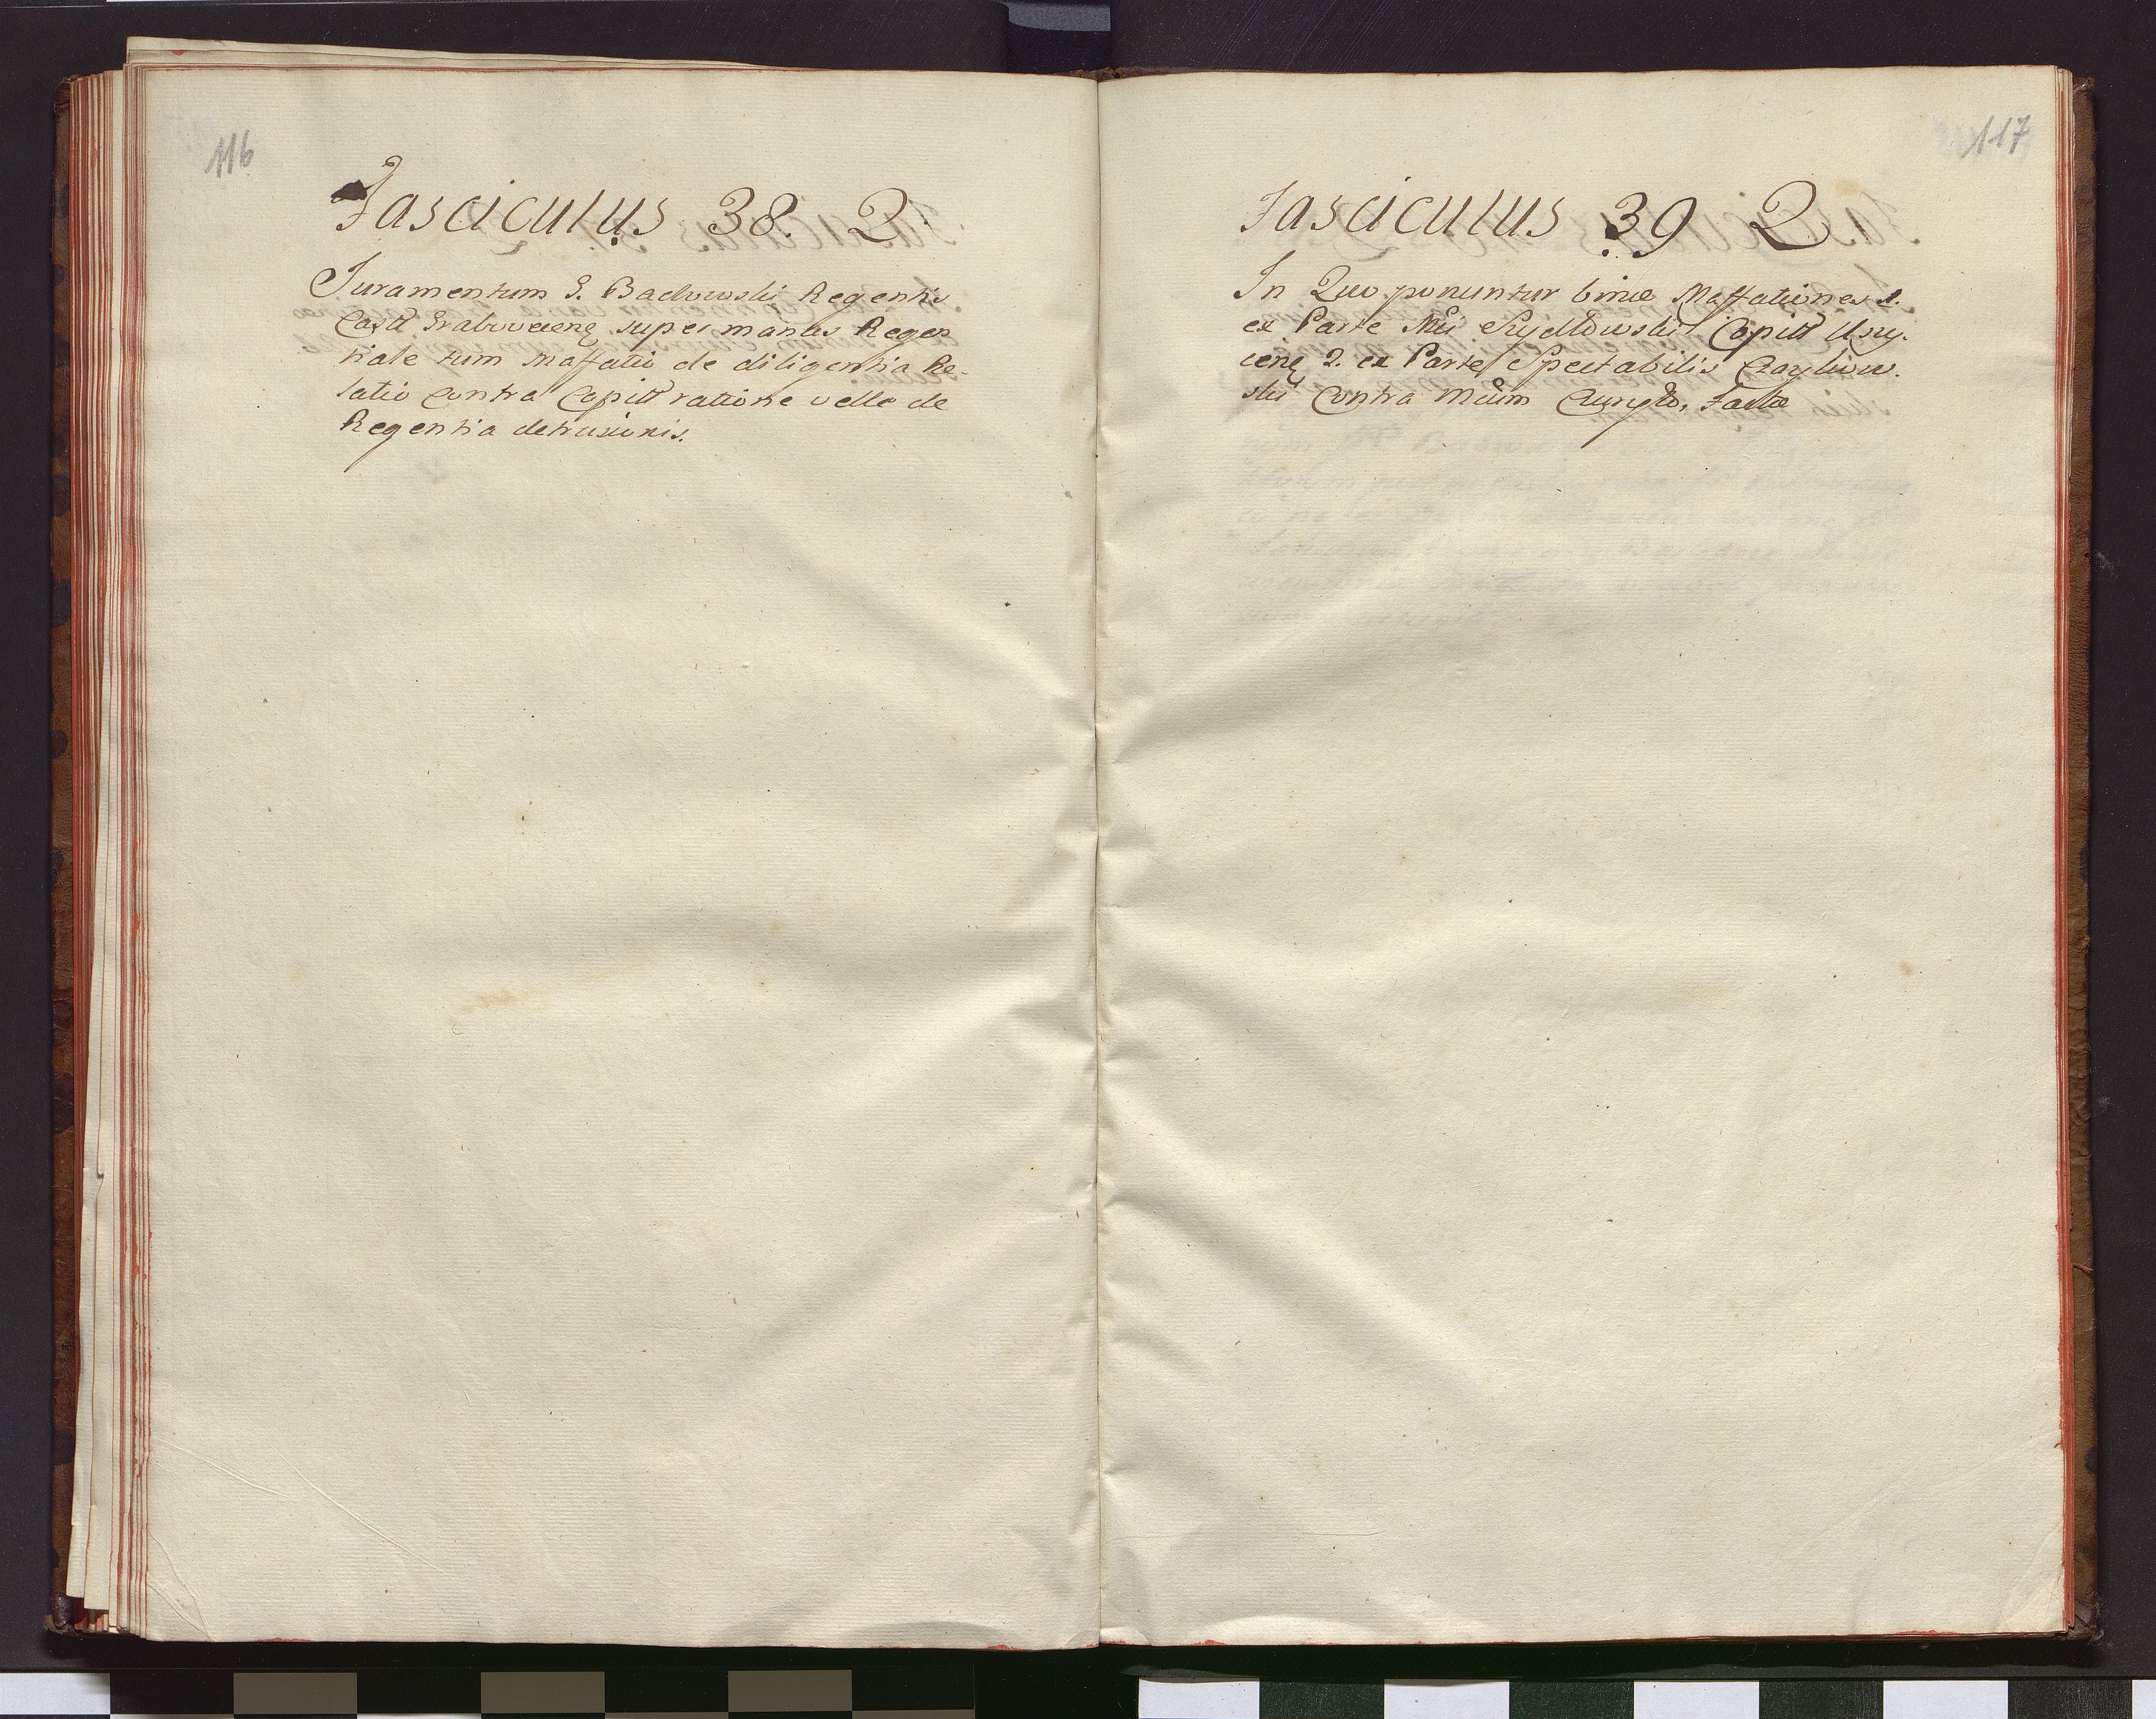 116
Fasciculus 38. 2
Juramentum G. Badowski Regentis
Castr Grabovecens super manus Regen
tiale tum Maffatio de diligentia Re-
latio Contra Capitt ratione velle de
Regentia detrusionis.
117
Fasciculus 39 2
In Quo ponuntur binæ Maffationes 1.
ex Parte Mci Rydłowski Capitt
2. ex Parte Spectabilis
ski Contra Mcum Factæ